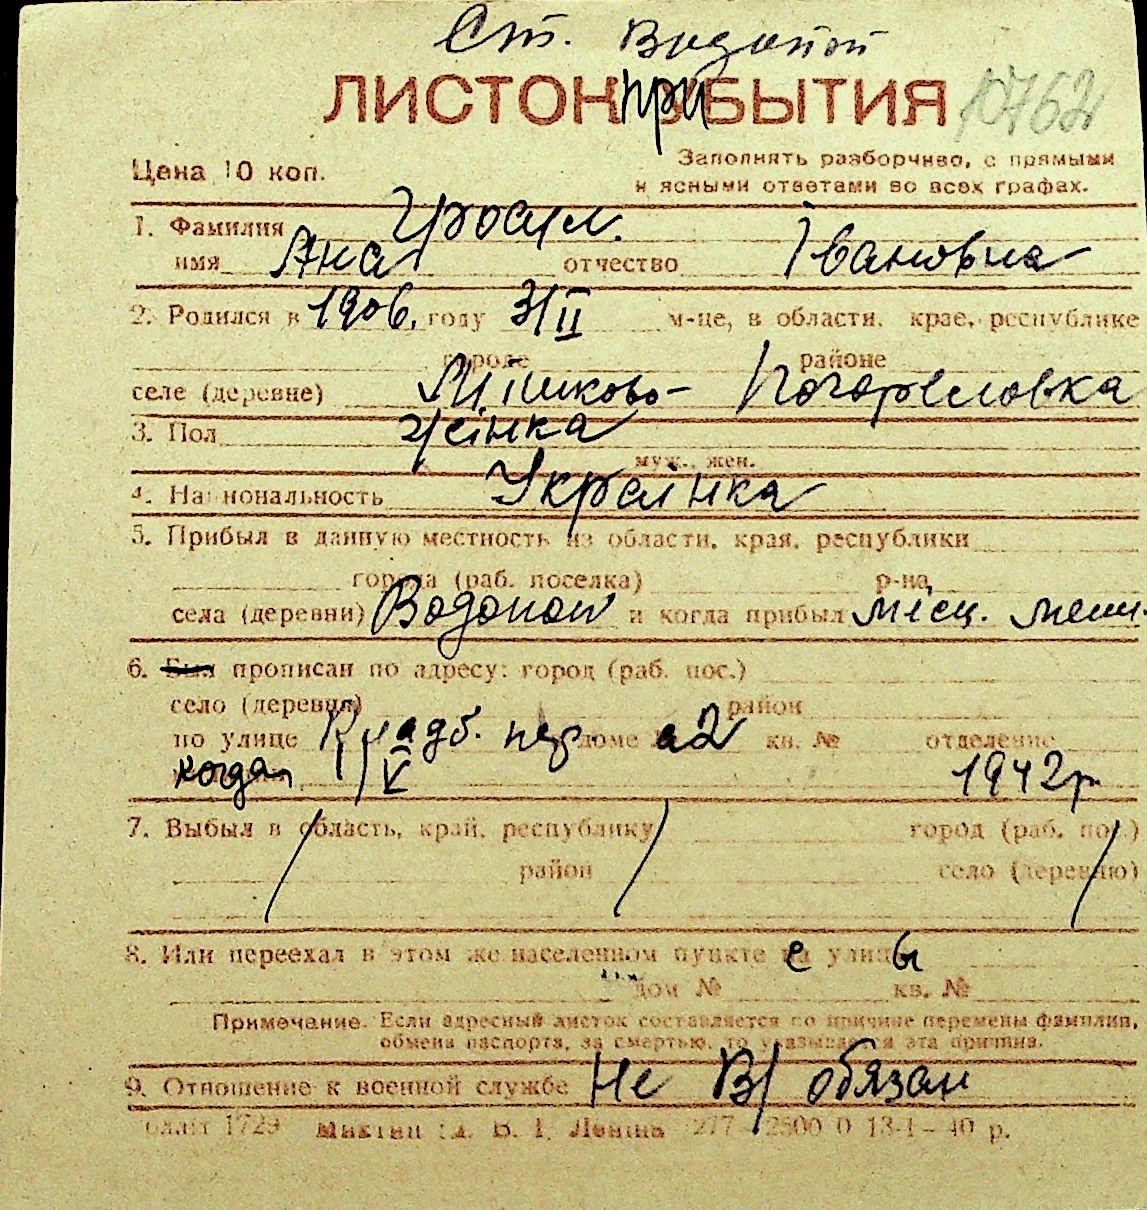 Ст. Водопой
ЛИСТОК ПРИБЫТИЯ 10762
Цена 10 коп.
Заполнять разборчиво, с прямыми
и ясными ответами во всех графах.
1. Фамилия
имя Ана отчество Івановна
2. Родился в 1906. году 3/II м-це, в области, крае, республике
городе районе
селе (деревне) Мішково- Погореловка
3. Пол жінка
муж., жен.
4. Национальность Українка
5. Прибыл в данную местность из области, края, республики
города (раб. поселка) р-на
села (деревни) Водопой и когда прибыл місц. меш.
6. Был прописан по адресу: город (раб. пос.)
село (деревня) район
по улице Кладб. пер. доме а2 кв. № отделение
когда V 1942р
7. Выбыл в область, край, республику город (раб. пос.)
район село (деревню)
8. Или переехал в этом же населенном пункте с улицы
дом № кв. №
Примечание. Если адресный листок составляется по причине перемены фамилии,
обмена паспорта, за смертью, то указывается эта причина.
9. Отношение к военной службе Не В/обязан
1729 Миколаїв В. І. Леніна 277—2500 0 13-I—40 р.